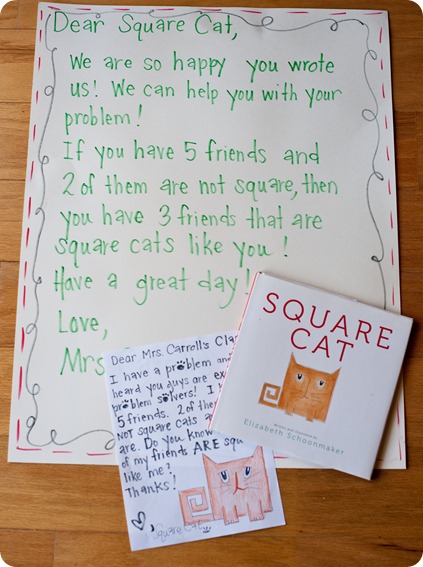 Dear Square Cat,
We are so happy you wrote
us! We can help you with your
problem!
If you have 5 friends and
2 of them are not square, then
you have 3 friends that are
square cats like you!
Have a great day!
Love,
Mrs.
Dear Mrs. Carroll's
I have a problem and
heard you guys are
problem solvers! I
5 friends. 2 of
NOT square cats
are. Do you know
of my friends ARE
like me?
Thanks!
Square Cat
SQUARE
CAT
Elizabeth Schoonmaker